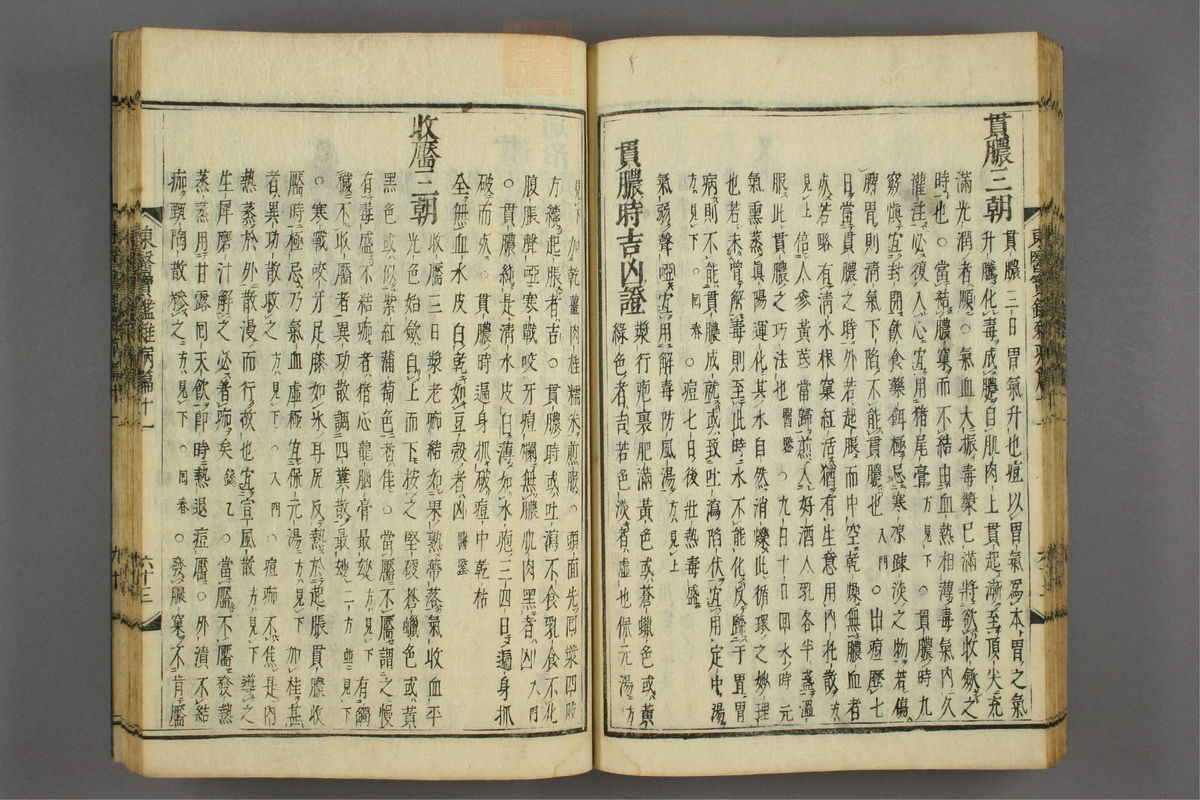 貫膿三朝
貫膿三日胃氣升也痘以胃氣爲本胃之氣
升騰化毒成膿自肌肉上貫起漸至頂尖充
滿光潤者順○氣血大振毒漿已滿將欲收斂之
時也○當貫膿窠而不結由血熱相薄毒氣內久
灌注必復入心宜用猪尾膏方見下○貫膿時九
竅愼宜封閉飮食藥餌極忌寒凉踈淡之物若傷
脾胃則淸氣下陷不能貫膿也入門○出痘歷七
日當貫膿之時外若起脹而中空乾燥無膿血者
死若略有淸水根窠紅活猶有生意用內托散方
見上倍人參黃芪當歸煎入好酒人乳各半盞溫
服此貫膿之巧法也醫鑒○九日十日回水時元
氣熏蒸眞陽運化其水自然消爍此循環之妙理
也若未曾解毒則至此時水不能化反歸于胃胃
病則不能貫膿成就或致吐瀉陷伏宜用定中湯
方見下○回春○痘七日後壯熱毒盛
氣弱聲啞宜用解毒防風湯方見上
貫膿時吉凶證
漿行疱裏肥滿黃色或蒼蠟色或黃
綠色者吉若色淡者虛也保元湯方
見下加乾薑肉桂糯米煎服○頭面先回漿四肢
方纔起脹者吉○貫膿時或吐瀉不食乳食不化
腹脹聲啞寒戰咬牙痘爛無膿肌肉黑者凶入門
○貫膿純是淸水皮白薄如水疱三四日遍身抓
破而死○貫膿時遍身抓破痘中乾枯
全無血水皮白乾如豆殼者凶醫鑒
收靨三朝
收靨三日漿老痂結如果熟蒂落氣收血平
光色始斂自上而下按之堅硬蒼蠟色或黃
黑色或似紫紅蒲萄色者佳○當靨不靨謂之慢
有毒盛不結痂者猪心龍腦膏最效方見下有觸
穢不收靨者異功散調四糞散最妙二方並見下
○寒戰咬牙足膝如氷耳尻反熱於起脹貫膿收
靨時極忌乃氣血虛極宜保元湯方見下加桂甚
者異功散救之方見下○入門○痘痂不焦是內
熱蒸於外散漫而行故也宜宣風散方見下導之
生犀磨汁解之必着痂矣錢乙○當靨不靨發熱
蒸蒸用甘露回天飮卽時熱退痘靨○外潰不結
痂甄陶散糝之方見下○回春○發膿窠不肯靨
東醫寶鑑雜病篇十一
六十三